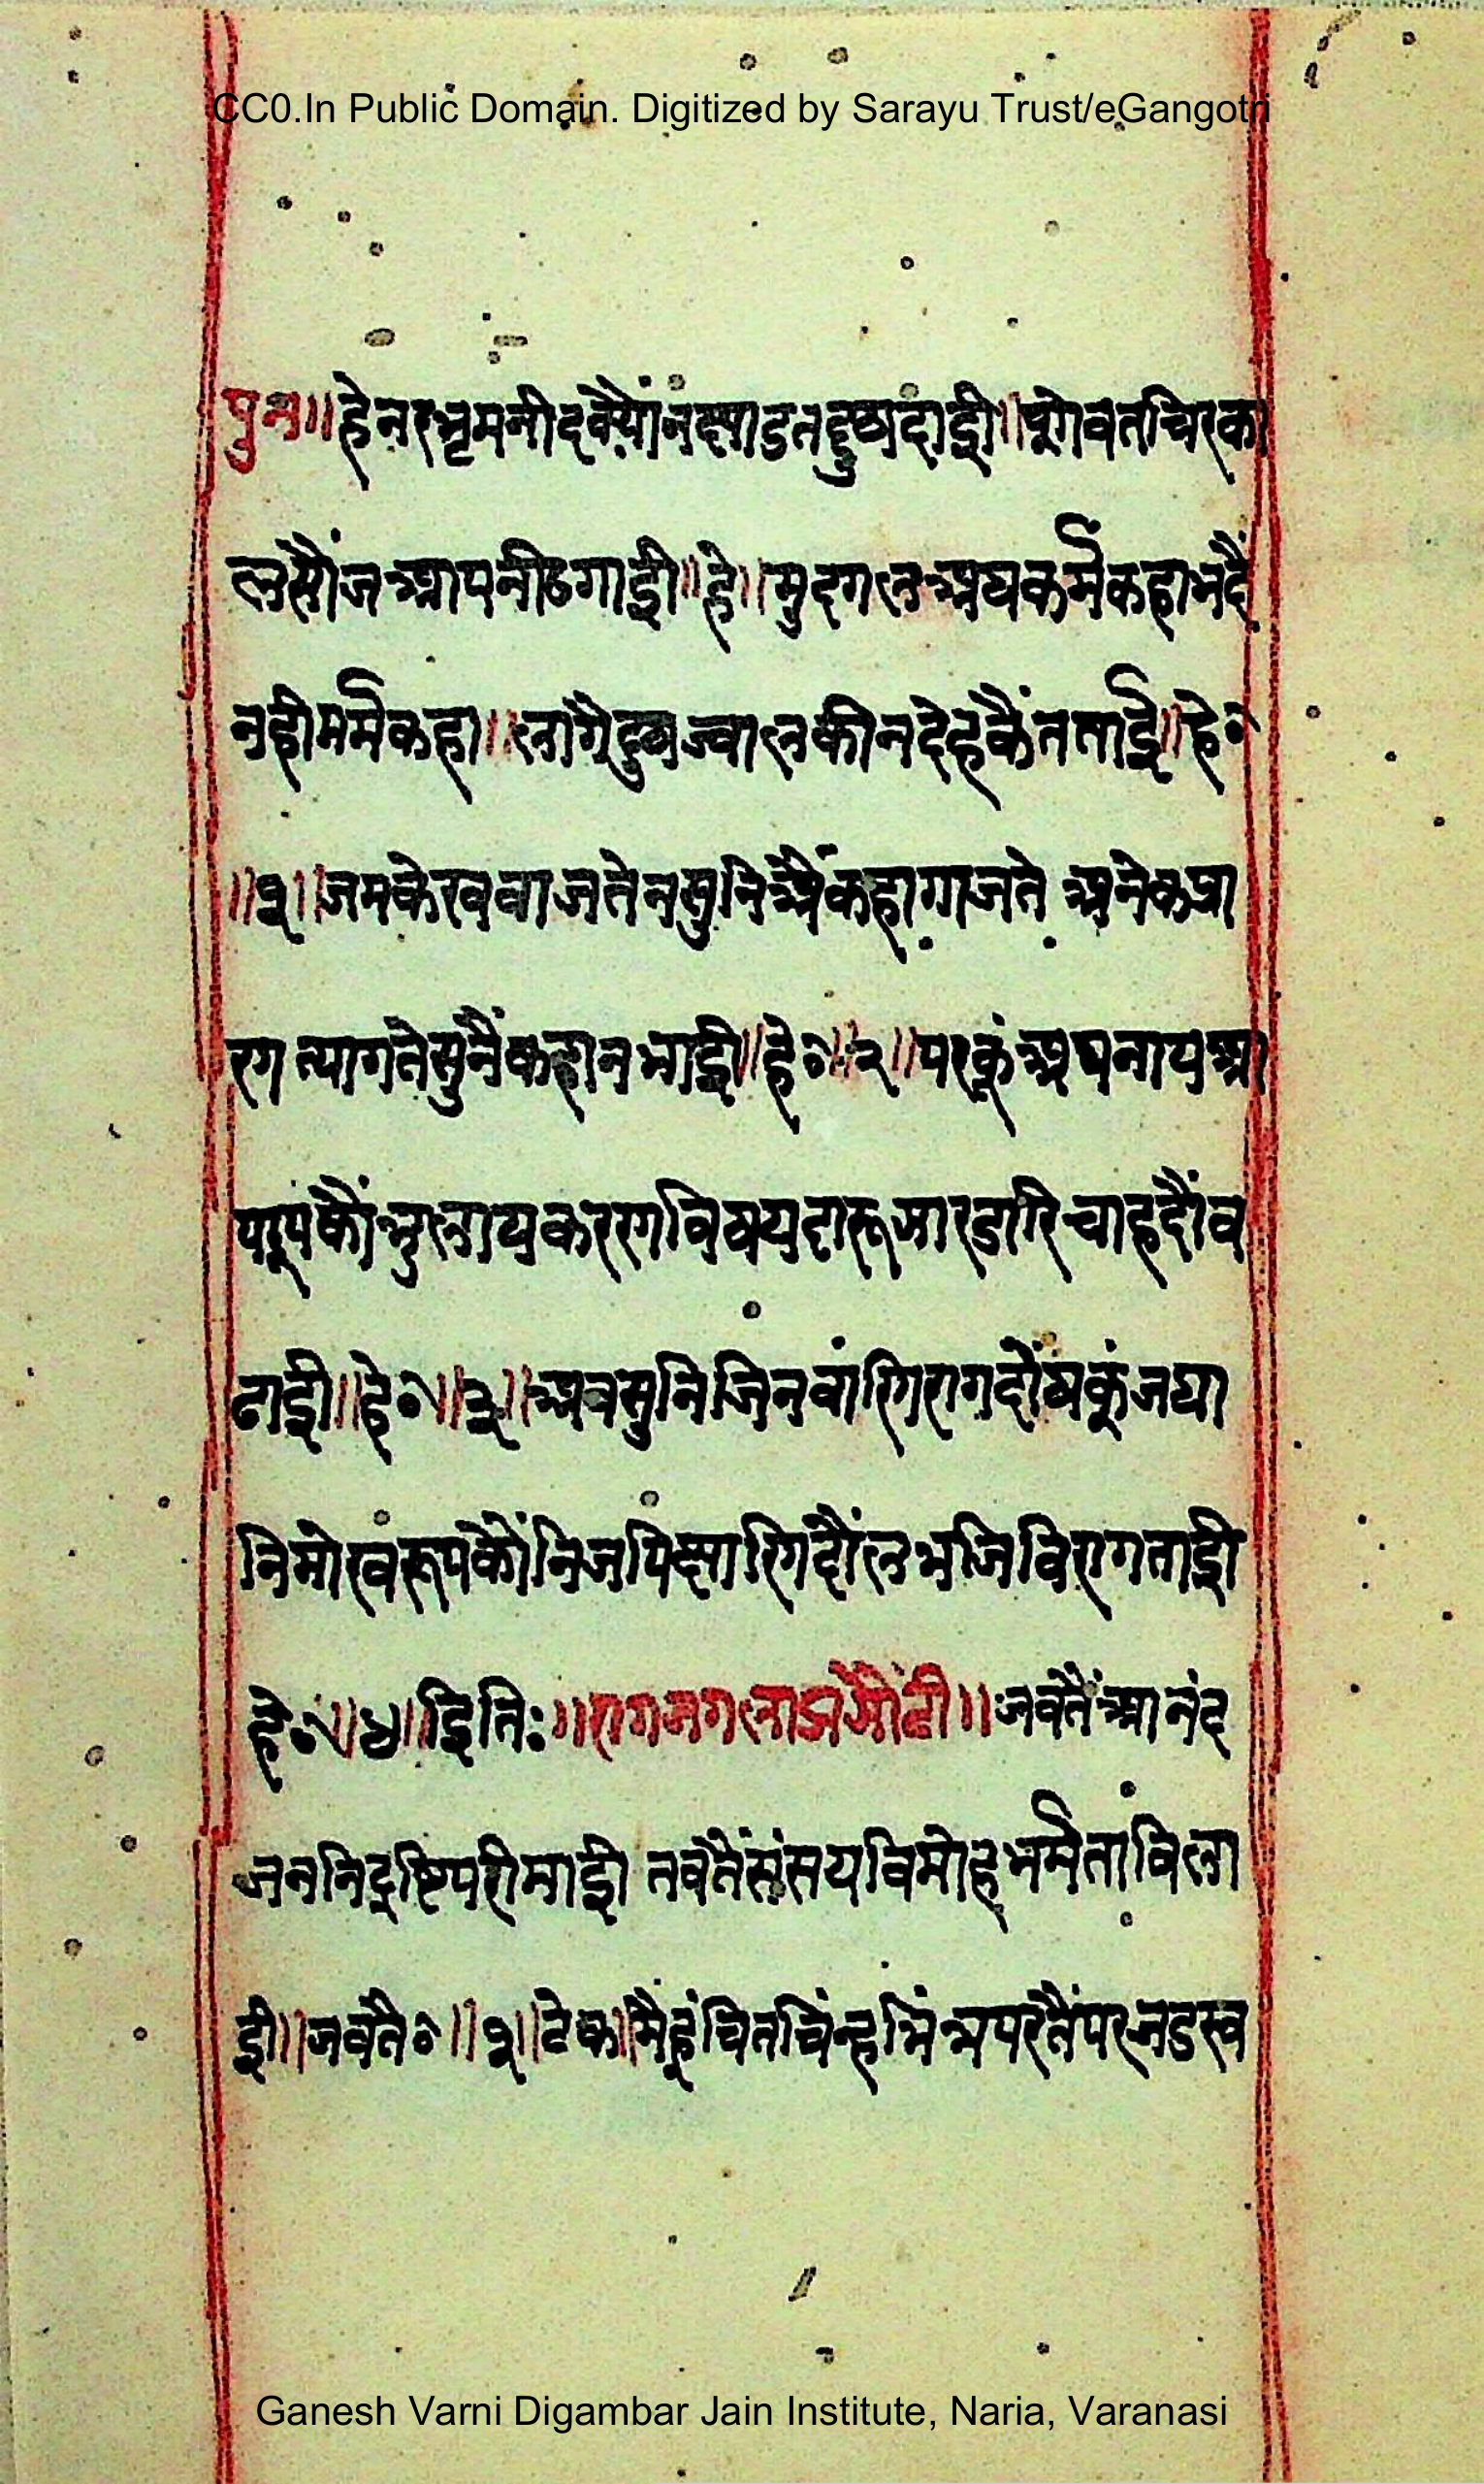 CC0.In Public Domain. Digitized by Sarayu Trust/eGangotri
पुन॥ हे नर भ्रमनीद क्यौं न छाडत दुषदाई॥ सोवत चिरका
ल सोंज आपनी ठगाई॥ हे॥ मुरग अघकर्म कहा भेदै
नही मर्म कहा॥ लागै दुष ज्वाल की न देह कै तताई॥ हे०
॥१॥ जम के रव वाजते न सुनि अै कहा गाजते अनेक प्रा
ण त्यागते सुनैं कहा न भाई॥ हे०॥२॥ पर कूं अपनाय आ
परूप कौं भुलाय करण विषय दारू जार डारि चाह दौं व
ढाई॥ हे०॥३॥ अव सुनि जिनवांणि राग दोंष कूं जघा
नि मोख रूप कौं निज पिछाणि दौल भजि विरागताई
हे०॥४॥ इति:॥ राग जगला झंझौटी॥ जवतैं आनंद
जननि द्रष्टि परी माई तवतैं संसय विमोह भर्मता विला
ई॥ जवतै०॥१॥ टेक॥ मैं हूं चित चिंन्ह भिंन्न परतैं पर जडस्व
Ganesh Varni Digambar Jain Institute, Naria, Varanasi